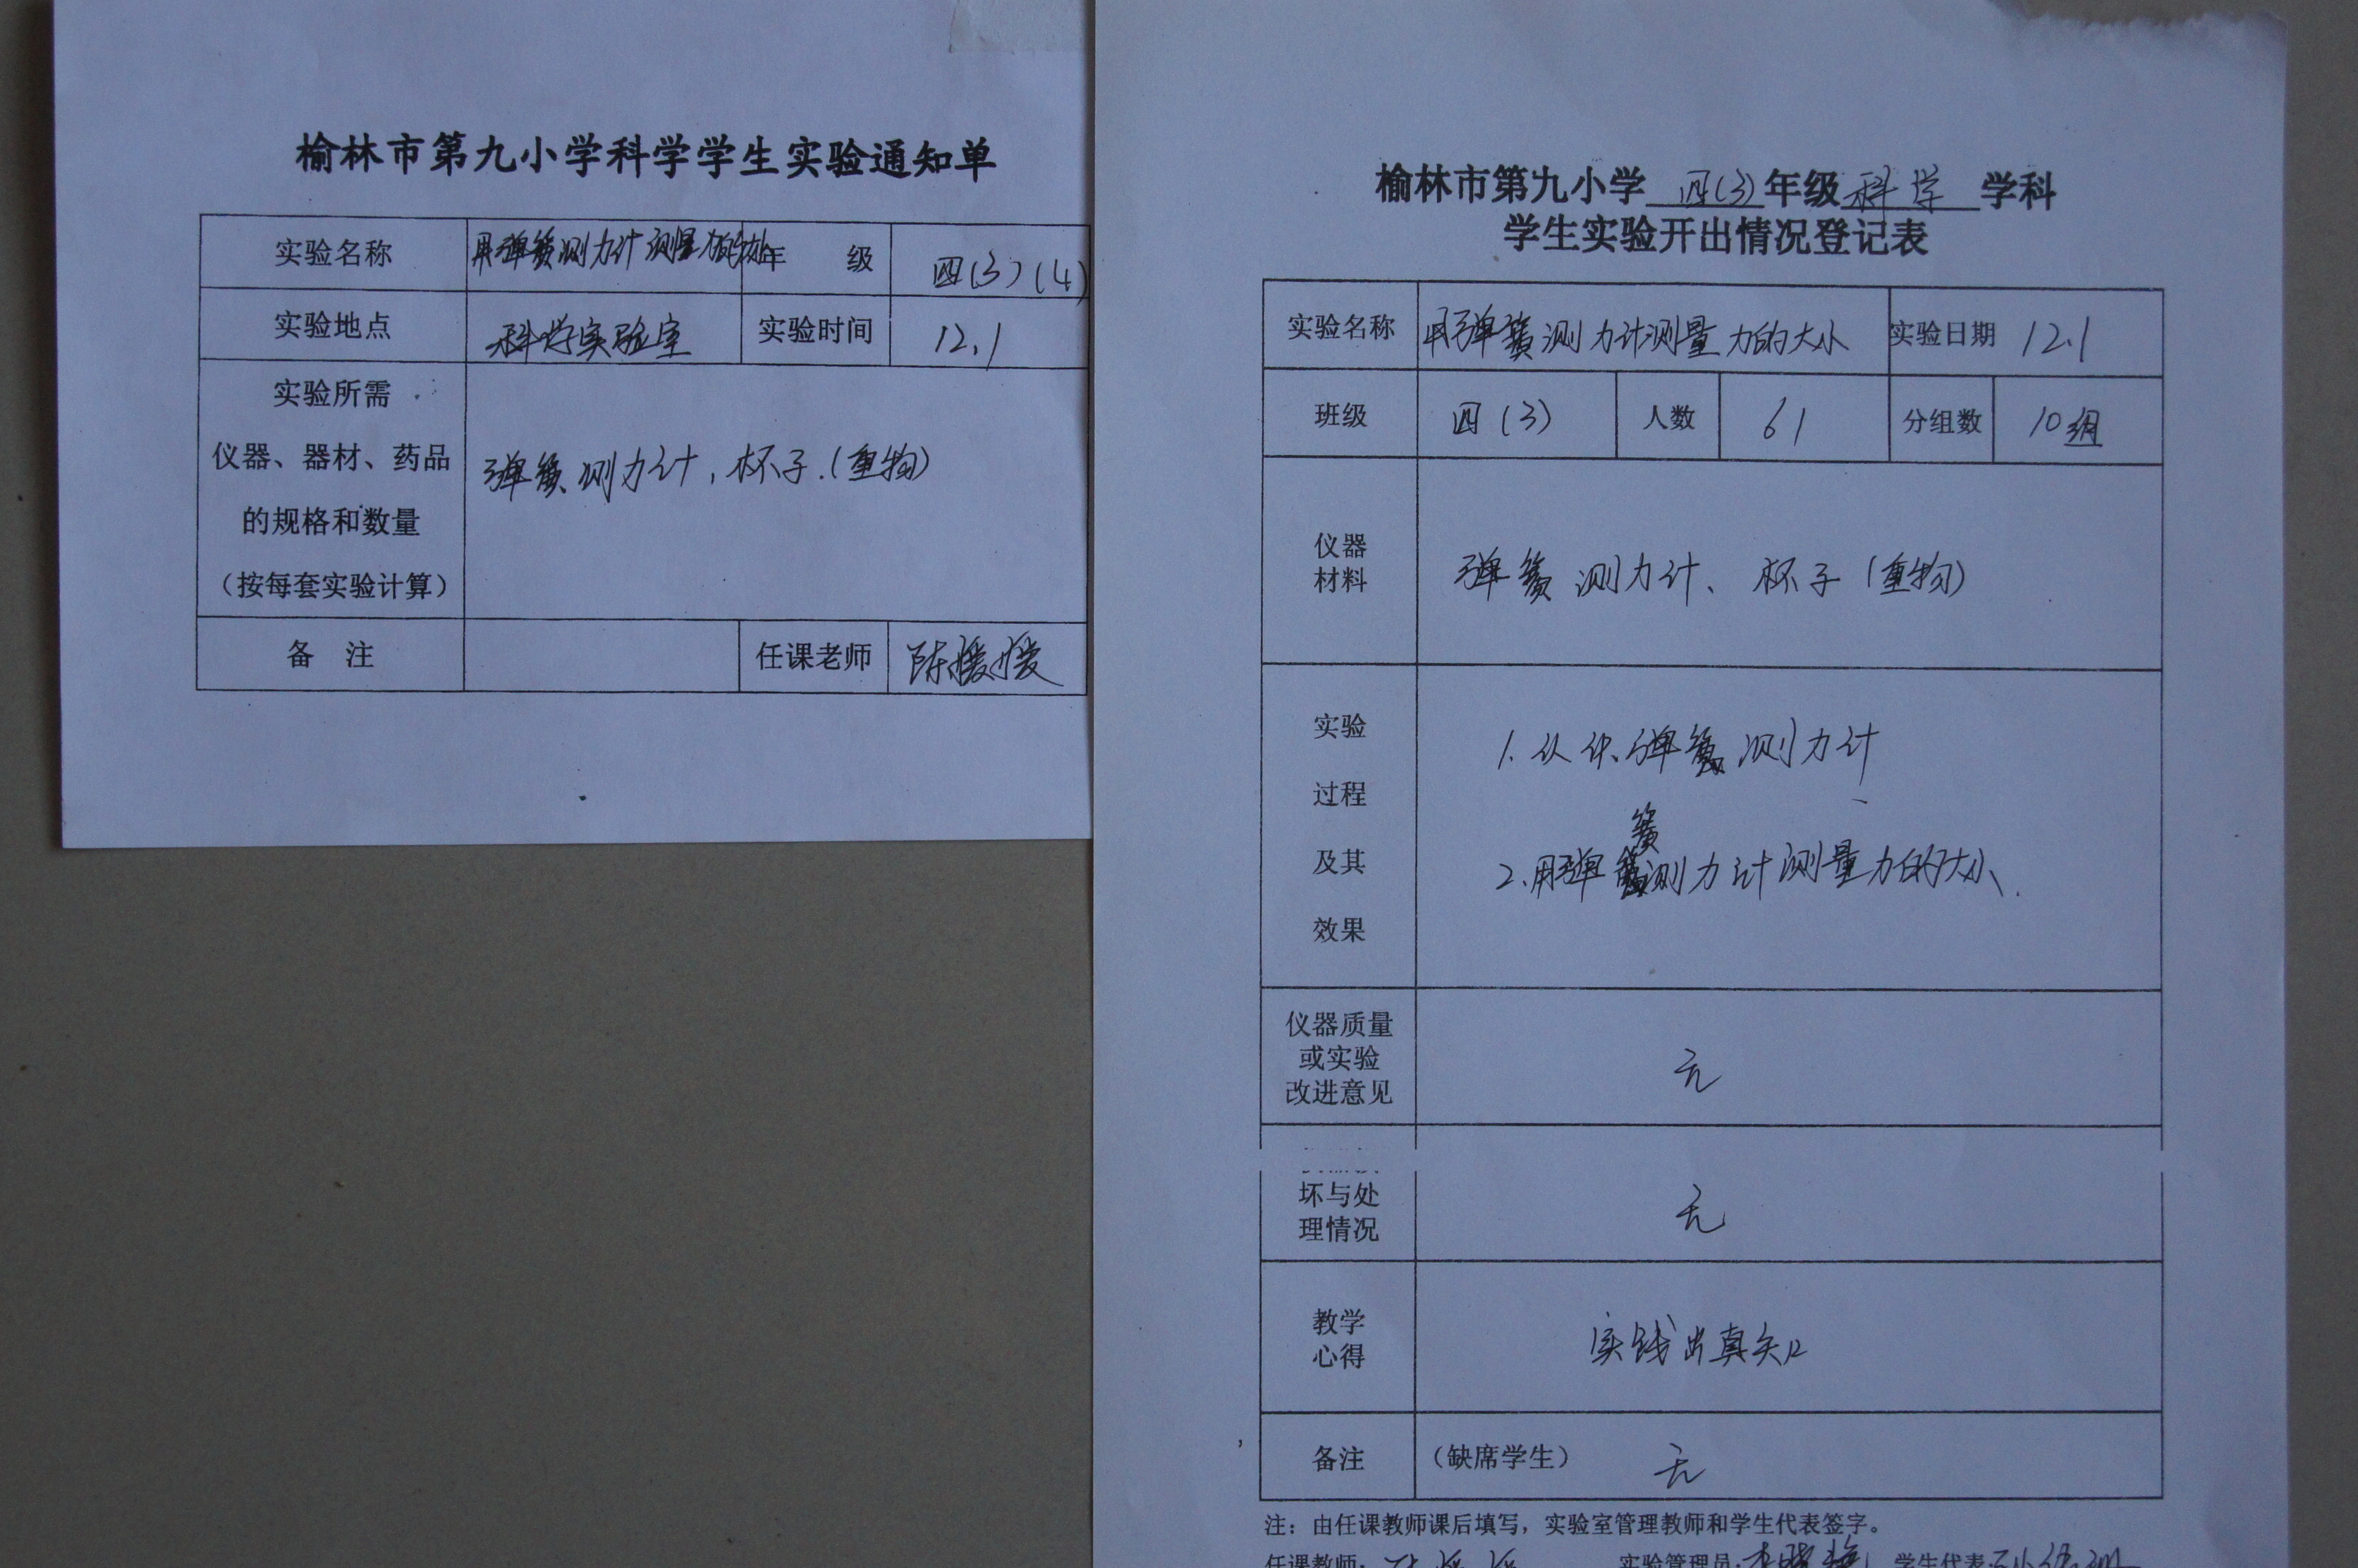 榆林市第九小学科学学生实验通知单
实验名称 用弹簧测力计测量力的大小 年 级 四(3)(4)
实验地点 科学实验室 实验时间 12.1
实验所需
仪器、器材、药品
的规格和数量
(按每套实验计算)
弹簧测力计,杯子.(重物)
备 注 任课老师 陈媛媛
榆林市第九小学 四(3) 年级 科学 学科
学生实验开出情况登记表
实验名称 用弹簧测力计测量力的大小 实验日期 12.1
班级 四(3) 人数 61 分组数 10组
仪器
材料
弹簧测力计、杯子(重物)
实验
过程
及其
效果
1.认识弹簧测力计
2.用弹簧测力计测量力的大小.
仪器质量
或实验
改进意见
无
坏与处
理情况
无
教学
心得
实践出真知
备注 (缺席学生) 无
注:由任课教师课后填写,实验室管理教师和学生代表签字。
任课教师: 陈媛媛 实验管理员: 学生代表: